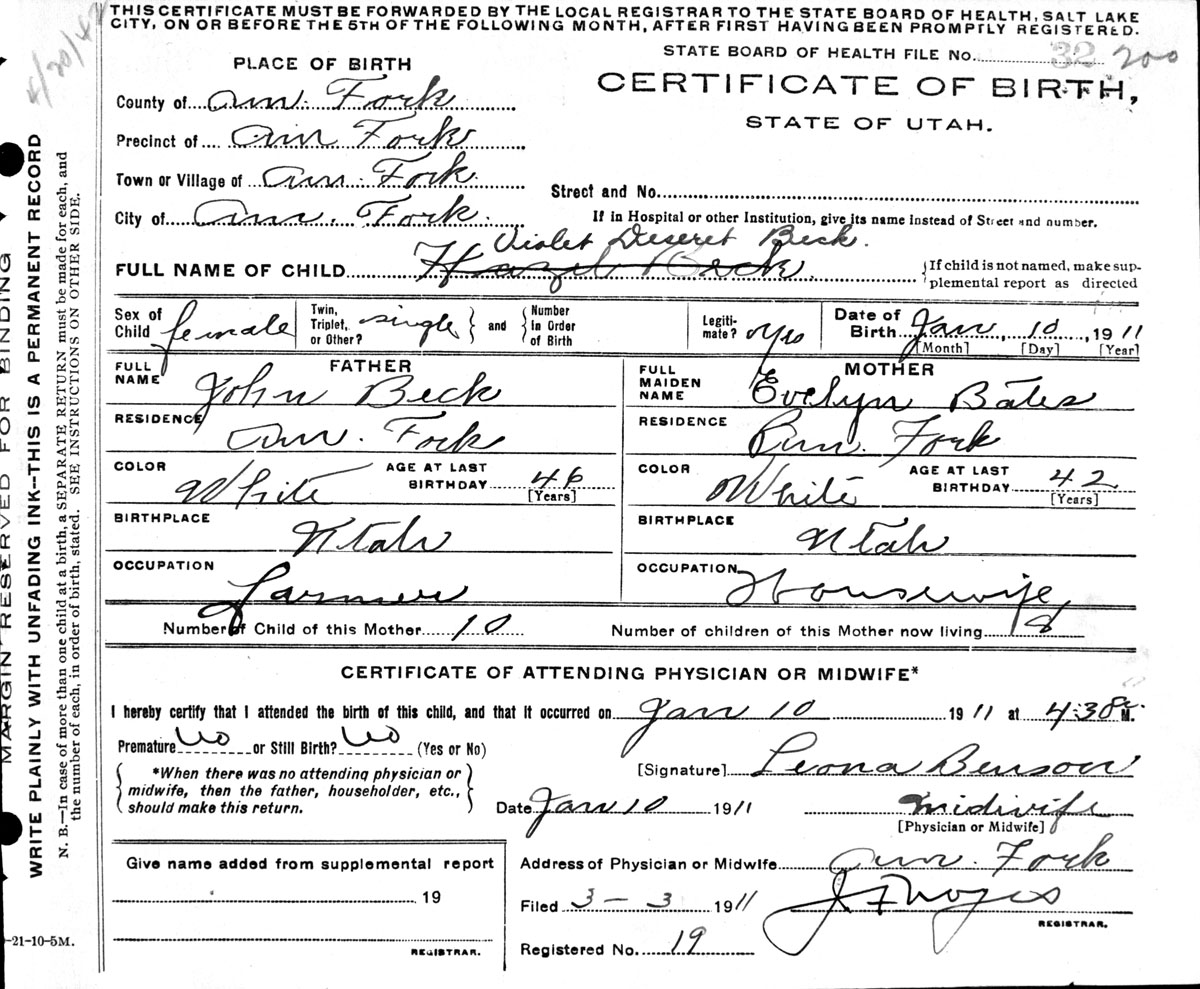 THIS CERTIFICATE MUST BE FORWARDED BY THE LOCAL REGISTRAR TO THE STATE BOARD OF HEALTH, SALT LAKE
CITY, ON OR BEFORE THE 5TH OF THE FOLLOWING MONTH, AFTER FIRST HAVING BEEN PROMPTLY REGISTERED.
STATE BOARD OF HEALTH FILE No. 32 200
PLACE OF BIRTH
CERTIFICATE OF BIRTH,
STATE OF UTAH.
County of Am. Fork
Precinct of Am Fork
Town or Village of Am. Fork
Street and No.
City of Am. Fork.
If in Hospital or other Institution, give its name instead of Street and number.
Violet Deseret Beck.
FULL NAME OF CHILD Hazel Beck.
If child is not named, make sup-
plemental report as directed
Sex of Child female
Twin, Triplet, or Other? single and Number In Order of Birth
Legiti-mate? Yes
Date of Birth Jan, 10, 1911
[Month] [Day] [Year]
FATHER
FULL NAME John Beck
RESIDENCE Am. Fork
COLOR White AGE AT LAST BIRTHDAY 46
[Years]
BIRTHPLACE Utah
OCCUPATION Farmer
MOTHER
FULL MAIDEN NAME Evelyn Bates
RESIDENCE Am. Fork
COLOR White AGE AT LAST BIRTHDAY 42
[Years]
BIRTHPLACE Utah
OCCUPATION Housewife
Number of Child of this Mother 10 Number of children of this Mother now living 8
CERTIFICATE OF ATTENDING PHYSICIAN OR MIDWIFE*
I hereby certify that I attended the birth of this child, and that it occurred on Jan 10 1911 at 4:30 M.
Premature No or Still Birth? No (Yes or No)
*When there was no attending physician or
midwife, then the father, householder, etc.,
should make this return.
[Signature] Leona Benson
Date Jan 10 1911 Midwife
[Physician or Midwife]
Give name added from supplemental report
19
REGISTRAR.
Address of Physician or Midwife Am. Fork
Filed 3-3 1911
REGISTRAR.
Registered No. 19
MARGIN RESERVED FOR BINDING
WRITE PLAINLY WITH UNFADING INK--THIS IS A PERMANENT RECORD
N. B.—In case of more than one child at a birth, a SEPARATE RETURN must be made for each, and
the number of each, in order of birth, stated. SEE INSTRUCTIONS ON OTHER SIDE.
-21-10-5M.